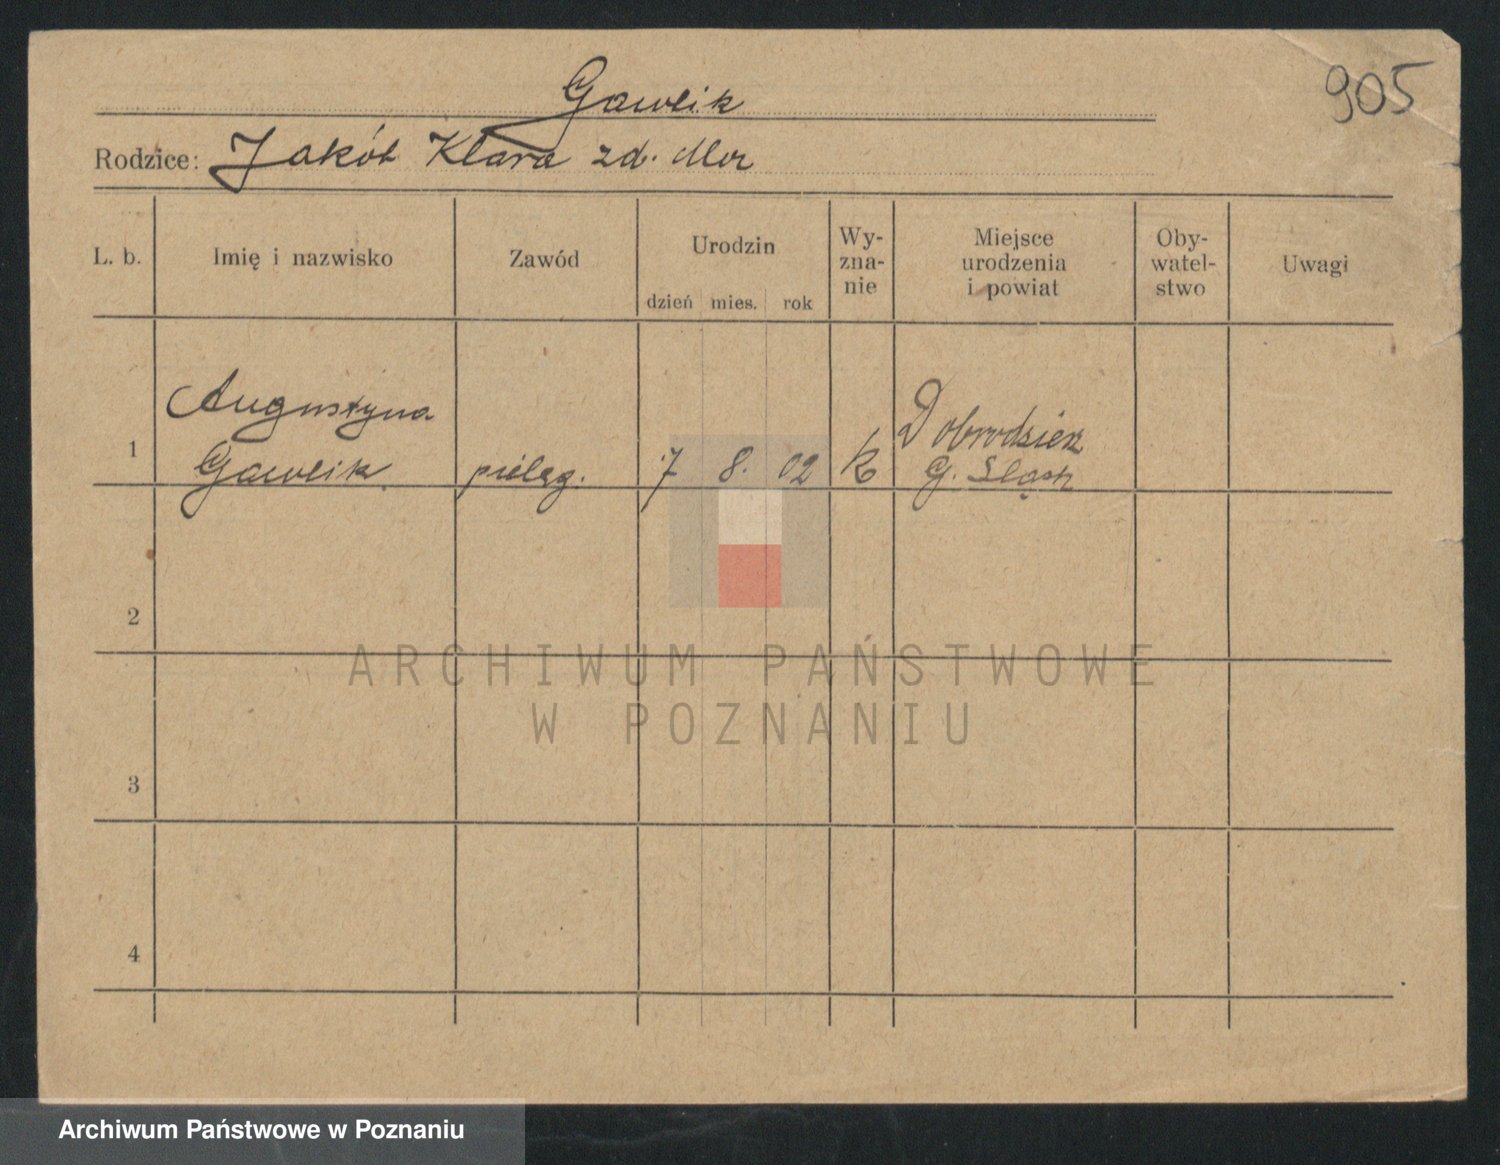 905
Gawlik
Rodzice: Jakób Klara zd. Mor
L. b.
Imię i nazwisko
Zawód
Urodzin
dzień mies. rok
Wy-
zna-
nie
Miejsce
urodzenia
i powiat
Oby-
watel-
stwo
Uwagi
Augustyna
1 Gawlik pielęg. 7 8. 02 k Dobrodzień
G. Śląsk
2
ARCHIWUM PAŃSTWOWE
W POZNANIU
3
4
Archiwum Państwowe w Poznaniu